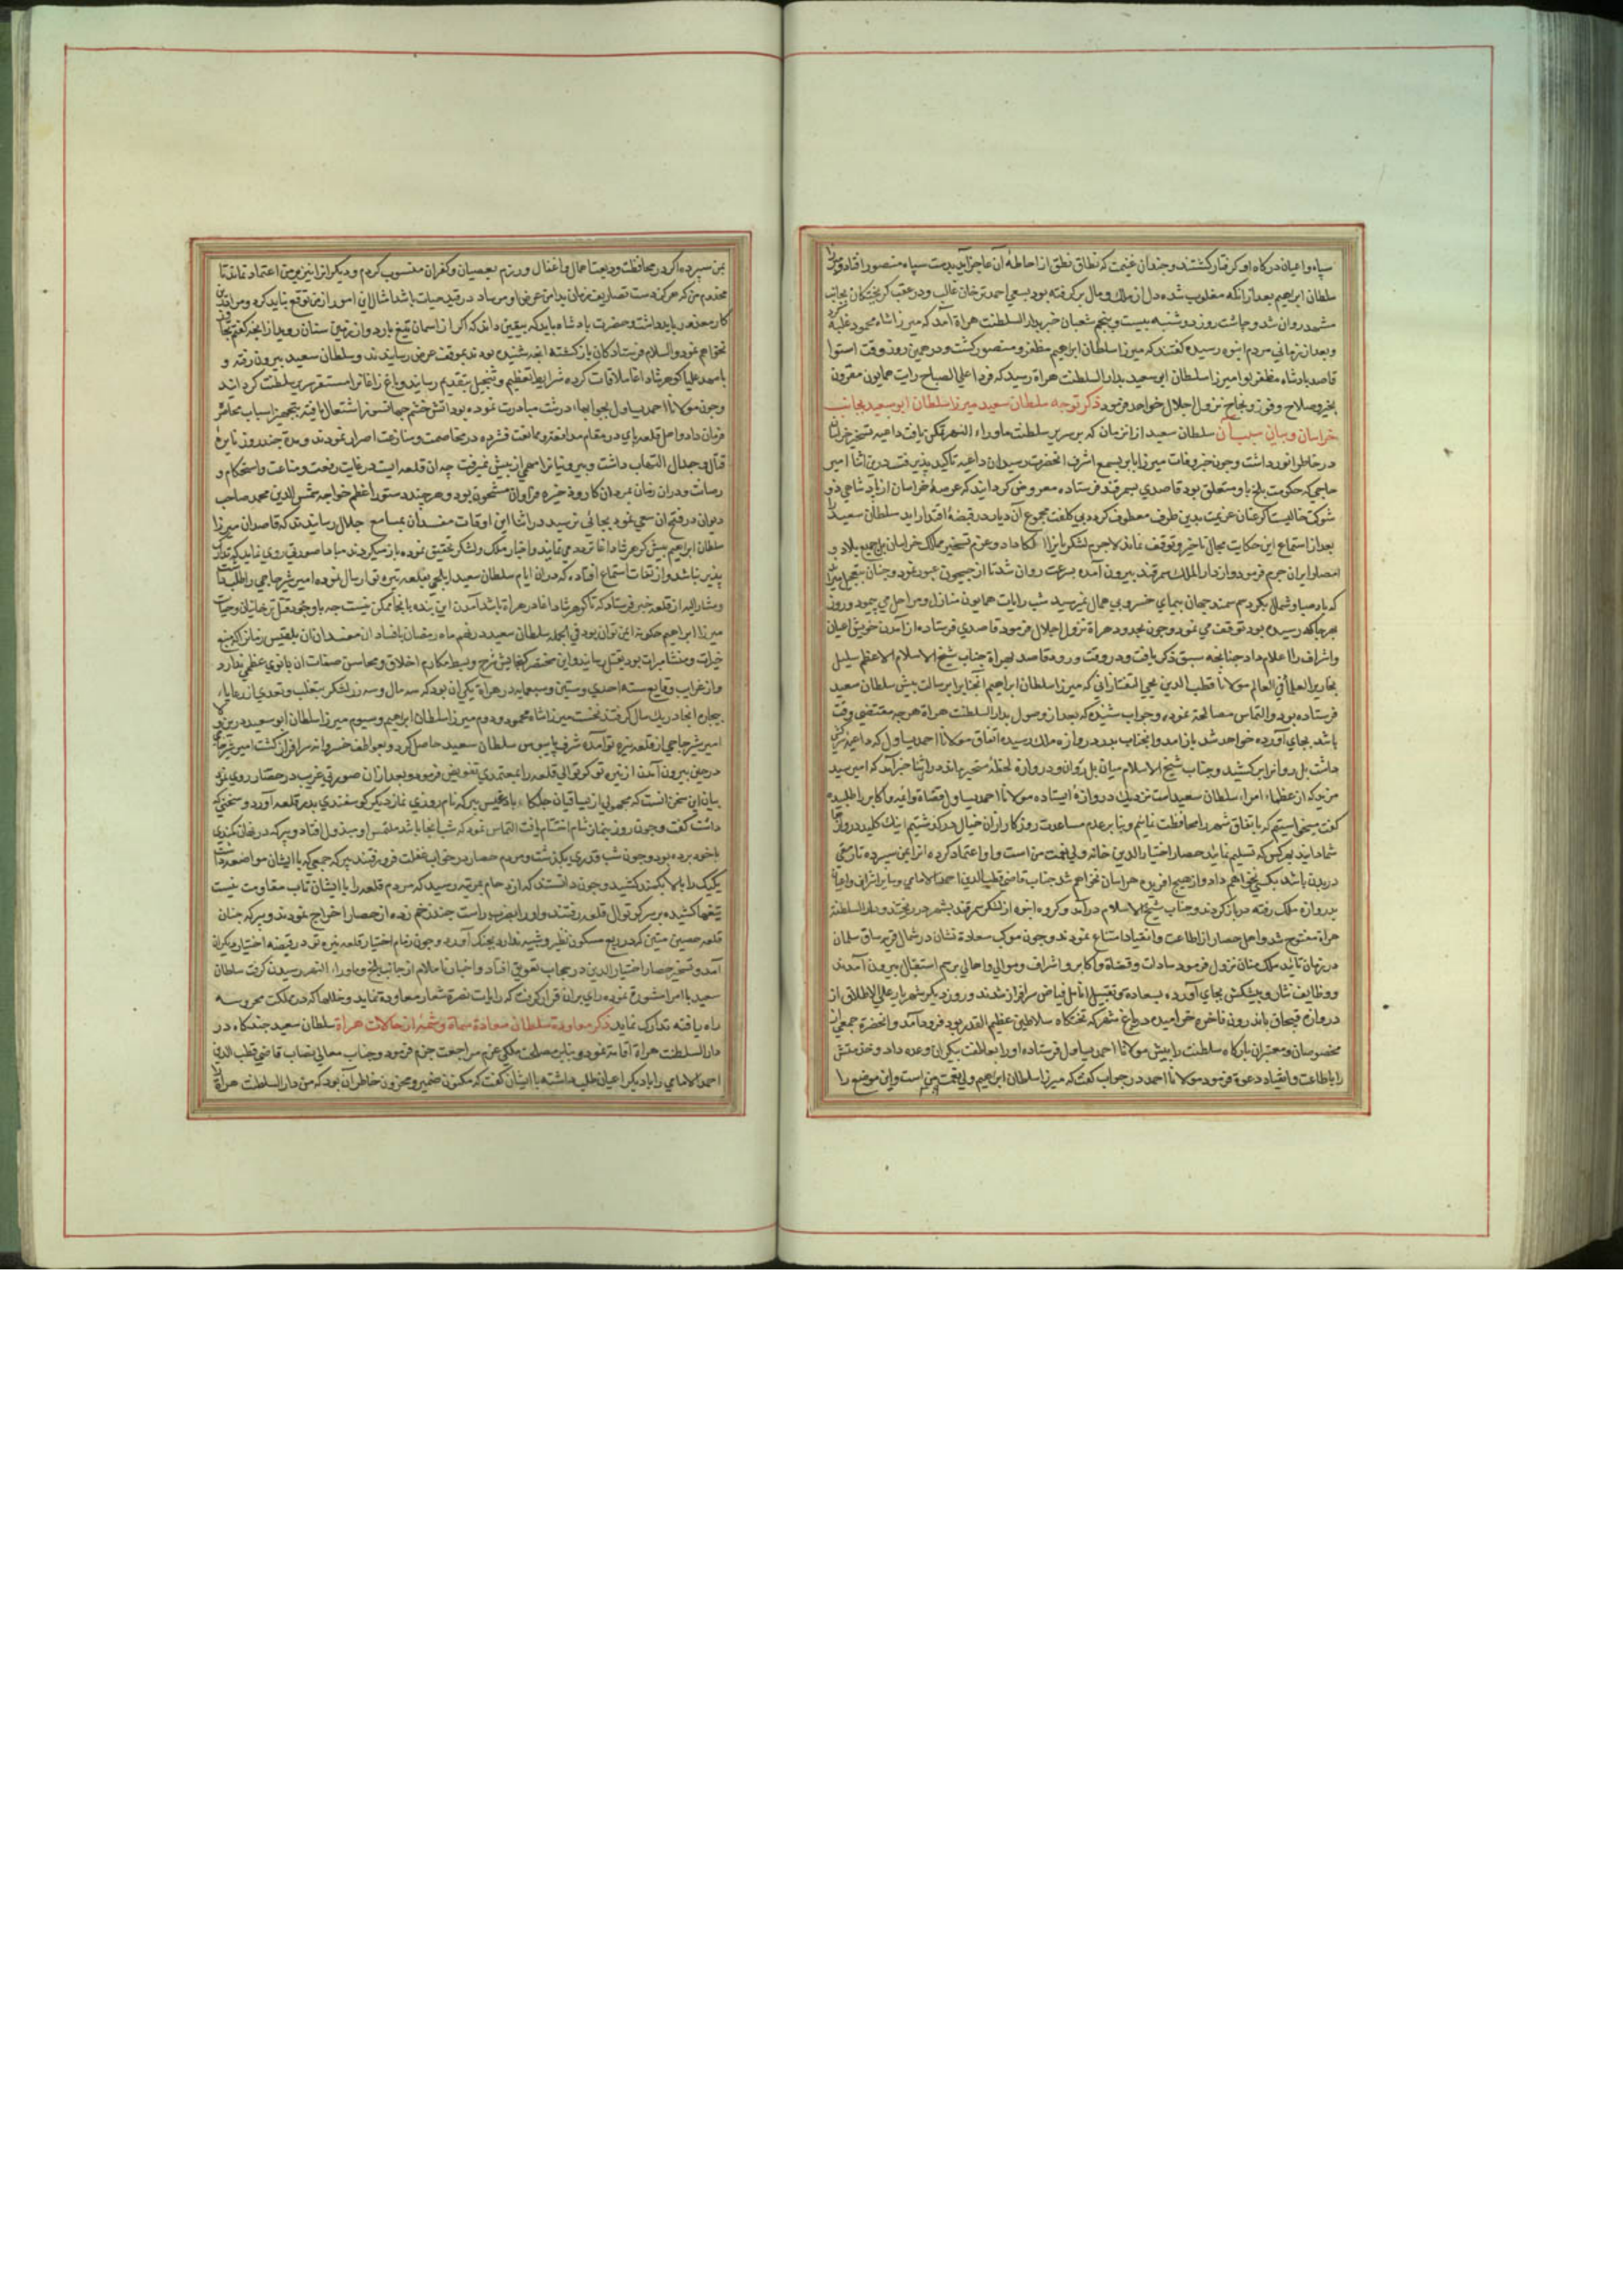 سپاه و اعیان درکاه او کرفتار کشتند و چندان غنیمت که نطاق نطق از احاطه آن عاجز آید بدست سپاه منصور افتاد و میرزا
سلطان ابراهیم بعد از انکه مغلوب شده دل از ملک و مال برکرفته بود بسعی احمد ترخان غالب و در عقب کریختکان بجانب
مشهد روان شد و چاشت روز دوشنبه بیست و پنجم شعبان خبر بدار السلطنت هراة آمد که میرزا شاه محمود غلبه کرد
و بعد از زمانی مردم انبوه رسیده کفتند که میرزا سلطان ابراهیم مظفر و منصور کشت و در همین روز وقت استوا
قاصد پادشاه مظفر لوا میرزا سلطان ابو سعید بدار السلطنت هراة رسید که فردا علی الصباح رایت همایون مقرون
بخیر و صلاح و فوز و نجاح نزول اجلال خواهد فرمود ذکر توجه سلطان سعید میرزا سلطان ابو سعید بجانب
خراسان و بیان سبب آن سلطان سعید از انزمان که بر سریر سلطنت ماوراء النهر تمکن یافت داعیه تسخیر خراسان
در خاطر انور داشت و چون خبر وفات میرزا بابر بسمع اشرف انحضرت رسید ان داعیه تاکید پذیرفت درین اثنا امیر
حاجی که حکومت بلخ باو متعلق بود قاصدی بسمرقند فرستاده معروض کردانید که عرصه خراسان از پادشاهی ذو
شوکت خالیست اکر عنان عزیمت بدین طرف معطوف کردد بی کلفت مجموع آن دیار در قبضه اقتدار اید سلطان سعید را
بعد از استماع این حکایت مجال تاخیر و توقف نماند لاجرم لشکریانرا الکا داد و عزم تسخیر ممالک خراسان بل جمیع بلاد و
امصار ایران جزم فرمود و از دار الملک سمرقند بیرون آمده بسرعت روان شد تا از جیحون عبور نمود و چنان بتعجیل میراند
که باد صبا و شمال بکرد سم سمند جهان پیمای خسرو بی همال نمیرسید شب رایات همایون منازل و مراحل می پیمود و روز
بهر جا که رسیده بود توقف می نمود و چون بحدود هراة نزول اجلال فرمود قاصدی فرستاده از آمدن خویش اعیان
و اشراف را اعلام داد چنانچه سبق ذکر یافت و در وقت ورود قاصد بهراة جناب شیخ الاسلام الاعظم سلیل
نحاریر العلماء فی العالم مولانا قطب الدین یحیی التفتازانی که میرزا سلطان ابراهیم آنجنابرا برسالت پیش سلطان سعید
فرستاده بود و التماس مصالحة نموده و جواب شنیده که بعد از وصول بدار السلطنت هراة هرچه مقتضی وقت
باشد بجای آورده خواهد شد باز امد و انجناب بدر دروازه ملک رسیده اتفاق مولانا احمد یساول که داعیه سرکشی
داشت پل روانرا برکشید و جناب شیخ الاسلام میان پل روان و دروازه لحظه متحیر بماند در اثنا خبر آمد که امیر سید
مزید که از عظماء امراء سلطان سعید است نزدیک دروازه ایستاده مولانا احمد یساول قضاة و ائمه و اکابر را طلبیده
کفت میخواستیم که باتفاق شهر را محافظت نمائیم و بنابر عدم مساعدت روزکار از ان خیال درکذشتیم اینک کلید دروازها
شما دانید بهر کس که تسلیم نمائید حصار اختیار الدین خانه ولی نعمت من است و او اعتماد کرده انرا بمن سپرده تا رمقی
در بدن باشد بکسی نخواهم داد و از هیچ افریده هراسان نخواهم شد جناب قاضی قطب الدین احمد الامامی و سایر اشراف و اعیان
بدروازه ملک رفته در باز کردند و جناب شیخ الاسلام درآمد و کروه انبوه از لشکر سمرقند بشهر در ریختند و دار السلطنة
هراة مفتوح شد و اهل حصار از اطاعت و انقیاد امتناع نمودند و چون موکب سعادة نشان در شمال قریه ساق سلمان
در زمان تائید ملک منان نزول فرمود سادات و قضاة و اکابر و اشراف و موالی و اهالی برسم استقبال بیرون آمدند
و وظایف نثار و پیشکش بجای آورده بسعادة تقبیل انامل فیاض سرافراز شدند و روز دیکر شهریار علی الاطلاق از
دروازه قبچاق باندرون فاخره خرامیده در باغ شهر که تختکاه سلاطین عظیم القدر بود فرود آمد و انحضرة جمعی از
مخصوصان و معتبران بارکاه سلطنت را پیش مولانا احمد یساول فرستاده او را بعلاطف بیکران وعده داد و خدمتش
را باطاعت و انقیاد دعوة فرمود مولانا احمد در جواب کفت که میرزا سلطان ابراهیم ولی نعمت من است و این موضع را
بمن سپرده اکر در محافظت ودیعت اهمال و اغفال ورزم بعصیان و کفران منسوب کردم و دیکر انرا نیز بر من اعتماد نماند تا
کار معذور باید داشت و حضرت پادشاه باید که بیقین داند که اکر از اسمان تیغ بارد و از زمین سنان روید از انچه کفتم تجاوز
نخواهم نمود و السلام فرستادکان بازکشته انچه شنیده بودند بموقف عرض رسانیدند و سلطان سعید بیرون رفته و
با مهد علیا کوهرشاد اغا ملاقات کرده شرایط تعظیم و تبجیل بتقدیم رسانید و باغ زاغانرا مستقر سریر سلطنت کردانید
و چون مولانا احمد یساول بجوابهاء درشت مبادرت نموده بود اتش خشم جهانسوز اشتعال یافته بتجهیز اسباب محاصره
فرمان داد و اهل قلعه پای در مقام مدافعه و ممانعت فشرده در مخاصمت و منازعت اصرار نمودند و مدة چند روز نایره
قتال و جدال التهاب داشت و بیرونیانرا مهمی از پیش نمیرفت چه ان قلعه ایست در غایت رفعت و مناعت و استحکام و
رصانت و دران زمان بمردان کار و ذخیره فراوان مشحون بود و هر چند دستور اعظم خواجه شمس الدین محمد صاحب
دیوان در فتح ان سعی نمود بجائی نرسید در اثنا این اوقات مفسدان بمسامع جلال رسانیدند که قاصدان میرزا
سلطان ابراهیم پیش کوهرشاد اغا تردد می نمایند و اخبار ملک و لشکر تحقیق نموده باز میکردند مبادا صورتی روی نماید که تدارک
پذیر نباشد و از ثقات استماع افتاده که دران ایام سلطان سعید ایلچی بقلعه نیره تو ارسال نموده امیر شیر حاجی را طلب داشت
و مشار الیه از قلعه خبر فرستاد که تا کوهرشاد اغا در هراة باشد آمدن این بنده بانجا ممکن نیست
میرزا ابراهیم چکونه ایمن توان بود فی الجمله سلطان سعید در نهم ماه رمضان بافساد ان مفسدان ان بلقیس زمانرا که منبع
خیرات و منشا مبرات بود بقتل رسانید و این مختصر کنجایش شرح و بسط مکارم اخلاق و محاسن صفات ان بانوی عظمی ندارد
و از غرایب وقایع سنه احدی و ستین و ثمانمایه در هراة یکی ان بود که سه سال و سه زر لشکر بتغلب و تعدی از رعایاء
بیچاره انجا در یک سال کرفتند نخست میرزا شاه محمود و دوم میرزا سلطان ابراهیم و سیوم میرزا سلطان ابو سعید
امیر شیر حاجی از قلعه نیره تو آمده شرف پایبوس سلطان سعید حاصل کرد و بعواطف خسروانه سرافراز کشت امیر شیر حاجی
در حین بیرون آمدن از نیره تو کوتوالی قلعه را بمعتمدی تفویض فرمود و بعد از ان صورتی غریب در حصار روی نمود
بیان این سخن انست که مجهولی از یساقیان جلکاء بادغیس پیرکه نام روزی نماز دیکر کوسفندی بدر قلعه آورد و سخنی که
داشت کفت و چون روز بنماز شام اختتام یافت التماس نمود که شب انجا باشد ملتمس او مبذول افتاد
با خود برده بود و چون شب قدری بکذشت و مردم حصار در خواب غفلت فرو رفتند پیرکه جمعی که با ایشان مواضعه داشت
یکیک را بالا بکمند کشید و چون دانستند که ازدحام بمرتبه رسید که مردم قلعه را با ایشان تاب مقاومت نیست
تیغها کشیده بر سر کوتوال قلعه رفتند و اورا بضرب راست چند زخم زده از حصار اخراج نمودند و پیرکه چنان
قلعه حصین متین که در ربع مسکون نظیر و شبیه ندارد بچنک آورد و چون زمام اختیار قلعه نیره تو در قبضه اختیار دیکران
آمد و تسخیر حصار اختیار الدین در حجاب تعویق افتاد و اخبار ناملایم از جانب بلخ و ماوراء النهر رسیدن کرفت سلطان
سعید با امرا مشورة نموده رای بران قرار کرفت که رایات نصرة شعار معاودة نماید و خللها که در مملکت محروسه
راه یافته تدارک نماید ذکر معاودة سلطان سعادة سماة و شمه از حالات هراة سلطان سعید چندکاه در
دار السلطنت هراة اقامة نمود و بنابر مصالح ملکی عزم مراجعت جزم فرمود و جناب معالی نصاب قاضی قطب الدین
احمد الامامی را با دیکر اعیان طلب داشته با ایشان کفت که مکنون ضمیر و مخزون خاطر آن بود که من دار السلطنت هراة را